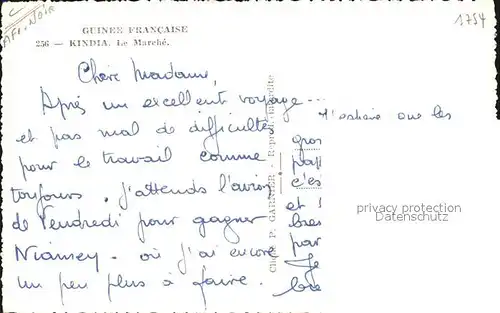 C
AFR. NOIR
1754
GUINÉE FRANÇAISE
256 — KINDIA. Le Marché.
Chère Madame,
Après un excellent voyage...
et pas mal de difficultés
pour le travail comme
toujours. J'attends l'avion
de Vendredi pour gagner
Niamey. où j'ai encore
un peu plus à faire.
Cliché P. GARNIER - Reproduction interdite
J'espère que les
gros
c'es
et
bres
par
Je
bre
privacy protection
Datenschutz